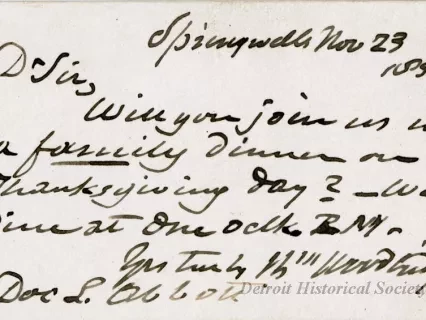 Springwells Nov 23
Dr Sir,
Will you join us
a family dinner on
Thanksgiving day? - We
dine at One oclk. P.M.
Yrs truly
Doc L. Abbott
Detroit Historical Society